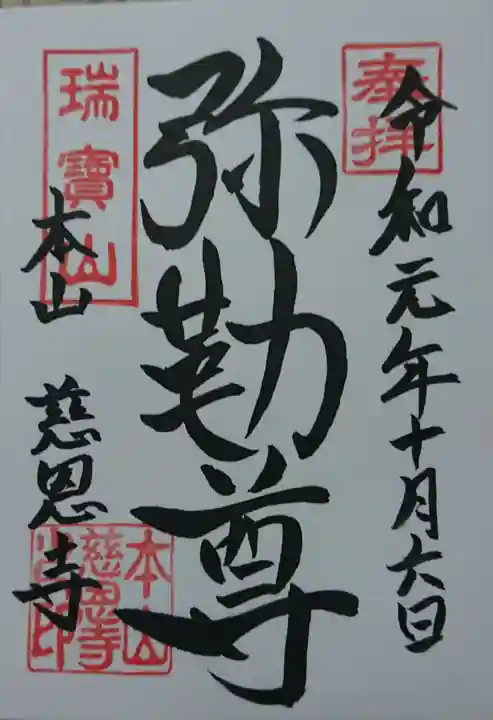 奉拝
令和元年十月六日
弥勒尊
瑞寳山
本山 慈恩寺
本山慈恩寺之印